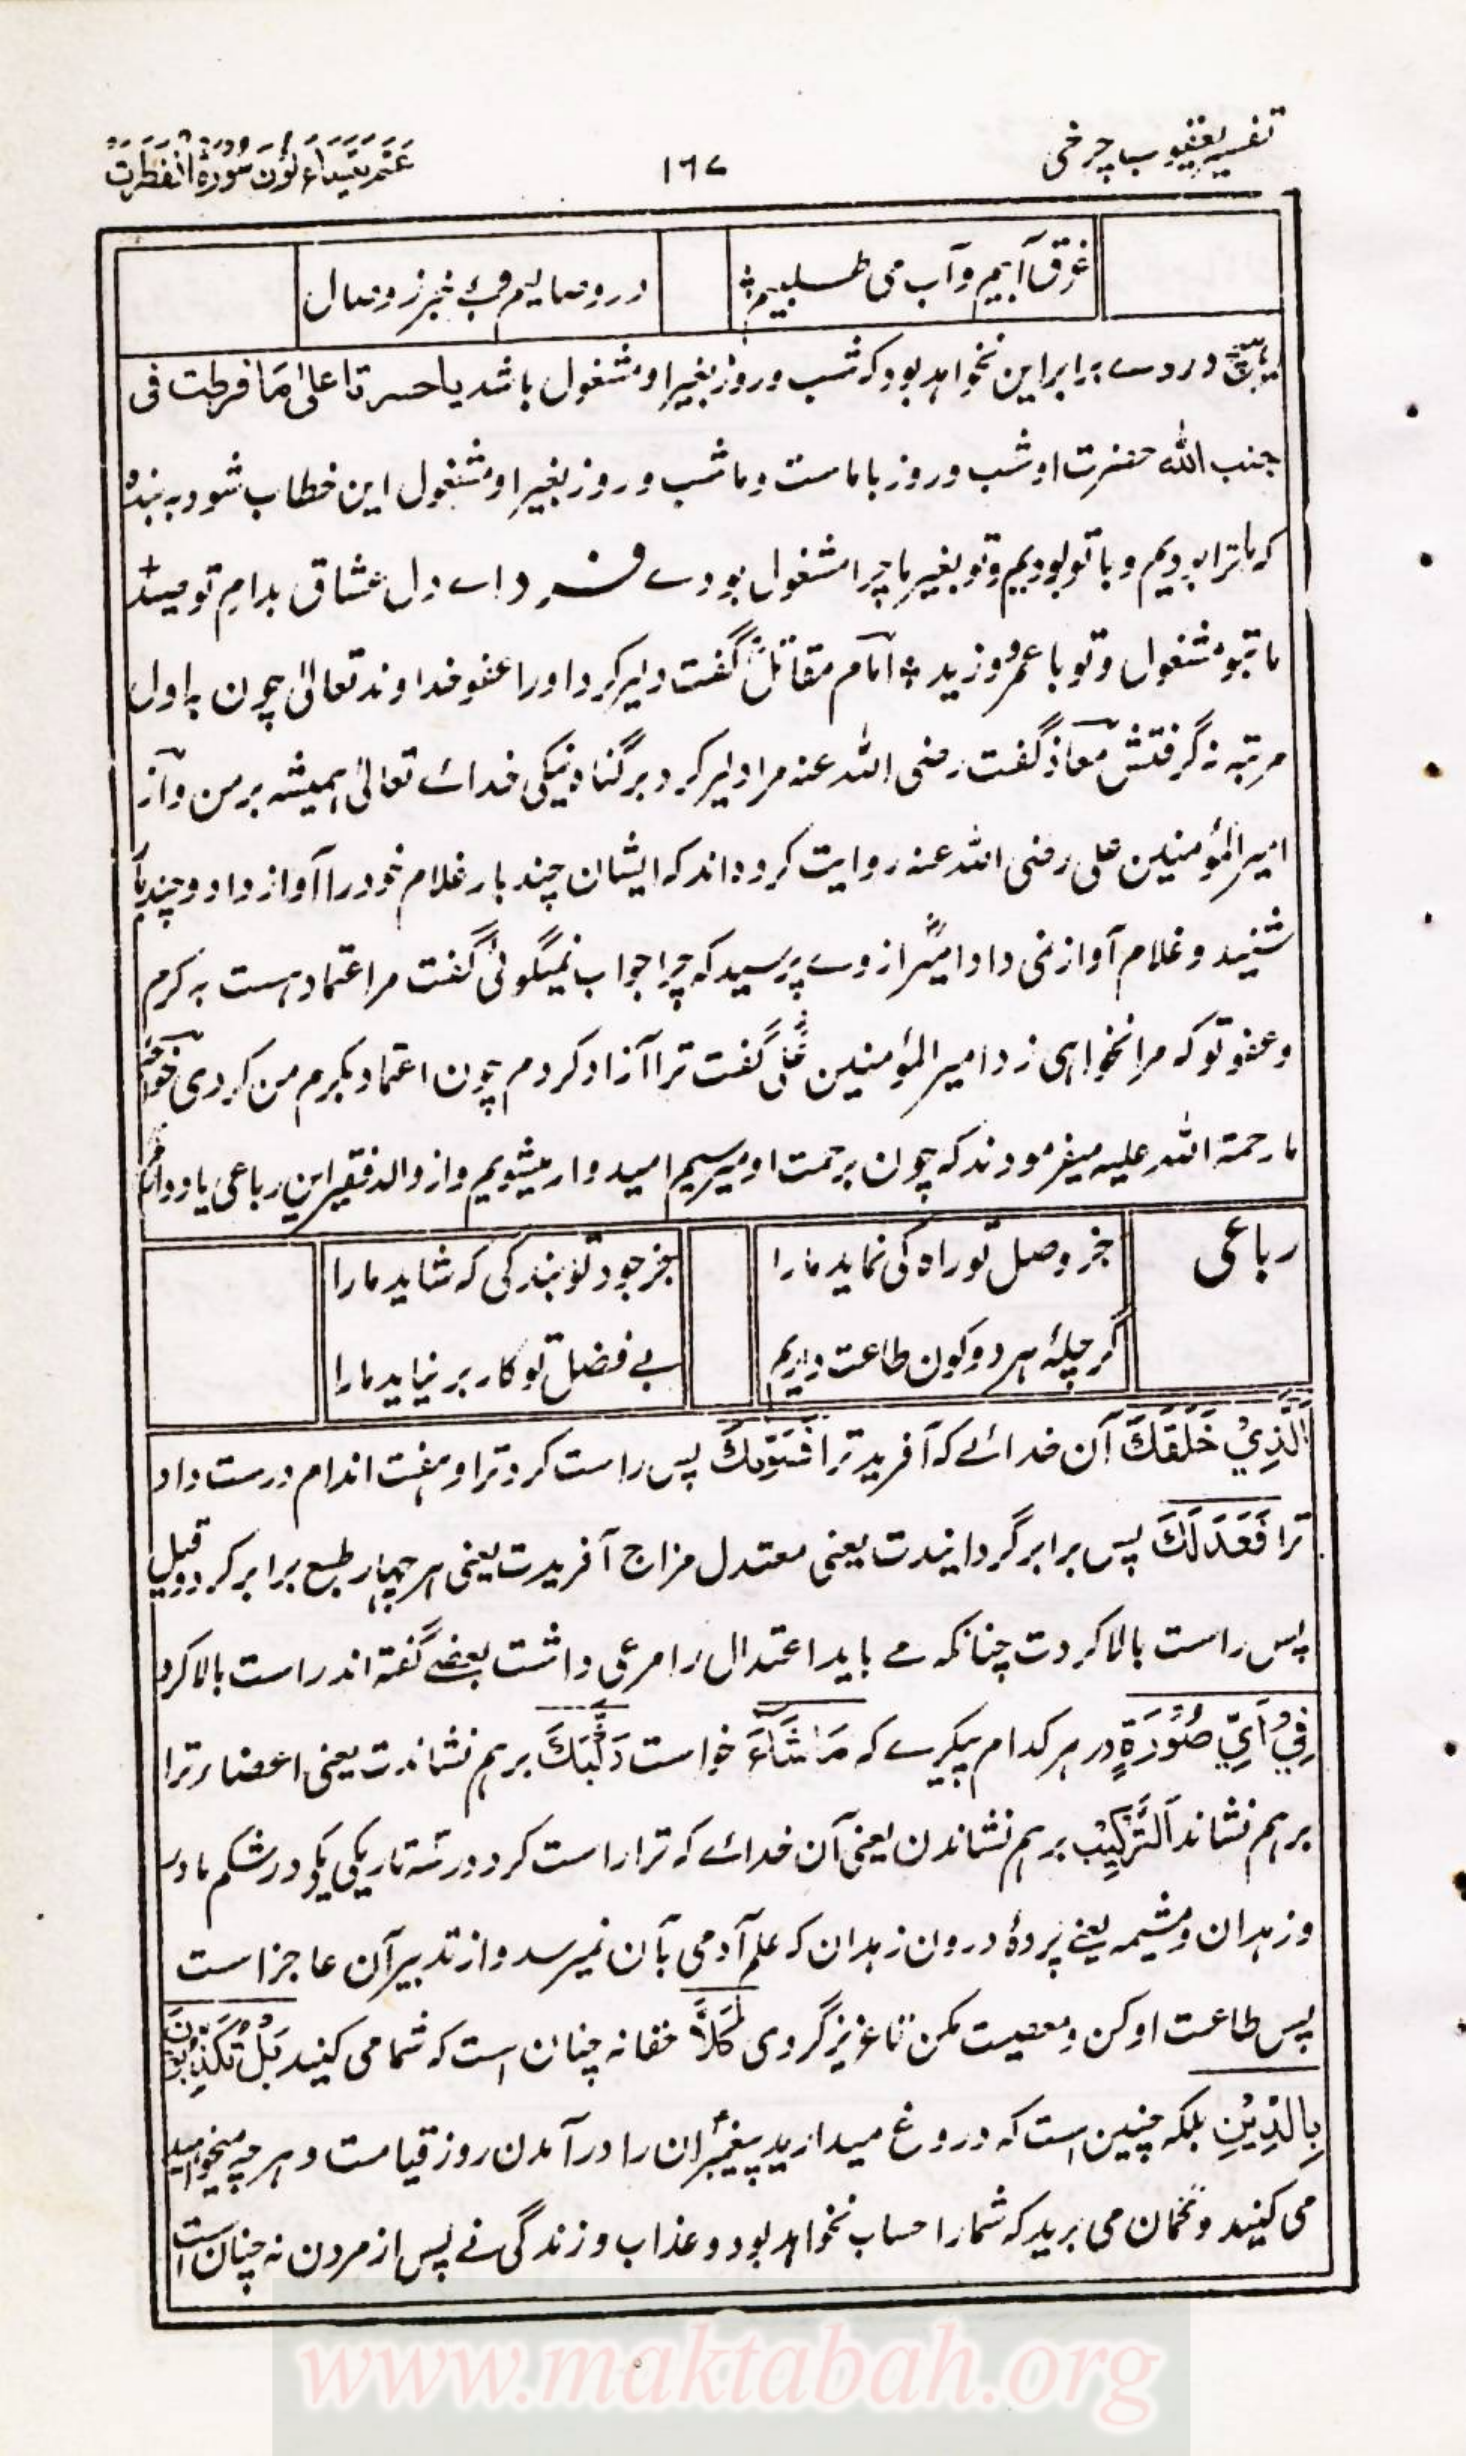 تفسیر یعقوب چرخی
۱۶۷
عَمَّ یَتَسَاءَلُوْنَ سُوْرَةُ انْفَطَرَتْ
غرق آبیم و آب می طلبیم
در وصالیم و بے خبر ز وصال
ہیچ دردے برابر این نخواہد بود کہ شب و روز بغیر او مشغول باشد یا حسرتا علیٰ مَا فرطت فی
جنب اللہ حضرت او شب و روز با ماست و ما شب و روز بغیر او مشغول این خطاب شود بہ بندہ
کہ ما ترا بودیم و با تو بودیم و تو بغیر ما چرا مشغول بودے فــرد اے دل عشاق بدام تو صید
ما بتو مشغول و تو با عمرو و زید امام مقاتل گفت دلیر کرد او را عفو خداوند تعالیٰ چون بہ اول
مرتبہ نہ گرفتش معاذ گفت رضی اللہ عنہ مرا دلیر کرد بر گناہ نیکی خداے تعالیٰ ہمیشہ بر من و از
امیرالمؤمنین علی رضی اللہ عنہ روایت کردہ اند کہ ایشان چند بار غلام خود را آواز داد و چند بار
شنید و غلام آواز نمی داد امیر از وے پرسید کہ چرا جواب نمیگوئی گفت مرا اعتماد ہست بہ کرم
و عفو تو کہ مرا نخواہی زد امیرالمؤمنین علی گفت ترا آزاد کردم چون اعتماد بکرم من کردی خواجہ
ما رحمۃ اللہ علیہ میفرمودند کہ چون برحمت او میرسیم امیدوار میشویم و از والد فقیر این رباعی یاد دارم
رباعی
جز وصل تو راہ کی نماید مارا
جز جود تو بندگی کہ شاید مارا
گر جملۂ ہر دو کون طاعت داریم
بے فضل تو کار بر نیاید مارا
اَلَّذِيْ خَلَقَكَ آن خدائے کہ آفرید ترا فَسَوّٰىكَ پس راست کرد ترا و ہفت اندام درست داد
ترا فَعَدَلَكَ پس برابر گردانیدت یعنی معتدل مزاج آفریدت یعنی ہر چہار طبع برابر کرد و قیل
پس راست بالا کردت چنانکہ مے باید اعتدال را مرعی داشت بعضے گفتہ اند راست بالا کرد
فِيْ اَيِّ صُوْرَةٍ در ہر کدام پیکرے کہ مَا شَآءَ خواست رَكَّبَكَ بر ہم نشاندت یعنی اعضاء ترا
بر ہم نشاند اَلتَّرْكِيْبُ بر ہم نشاندن یعنی آن خداے کہ ترا راست کرد در سہ تاریکی یکے در شکم مادر
و زہدان و مشیمہ یعنے پردۂ درون زہدان کہ علم آدمی بآن نمیرسد و از تدبیر آن عاجز است
پس طاعت او کن و معصیت مکن تا عزیز گردی كَلَّا حقا نہ چنان است کہ شما می کنید بَلْ تُكَذِّبُوْنَ
بِالدِّيْنِ بلکہ چنین است کہ دروغ میدارید پیغمبران را در آمدن روز قیامت و ہر چہ میخواہید
می کنید و گمان می برید کہ شما را حساب نخواہد بود و عذاب و زندگی نے پس از مردن نہ چنان است
www.maktabah.org